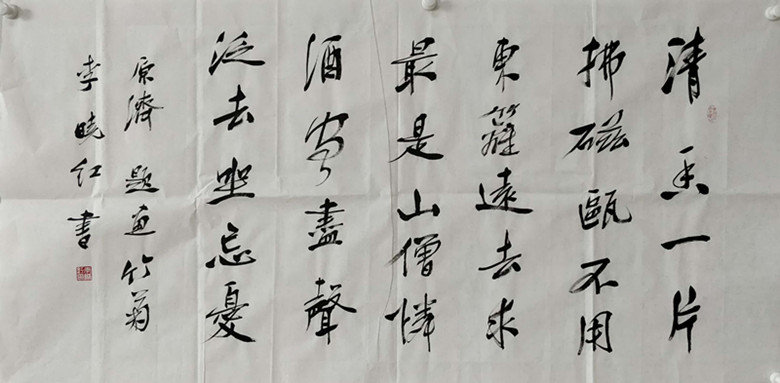 清香一片
拂磁甌不用
東籬遠去求
最是山僧憐
酒客盡聲
泛去坐忘憂
原濟題畫竹菊
李曉红書